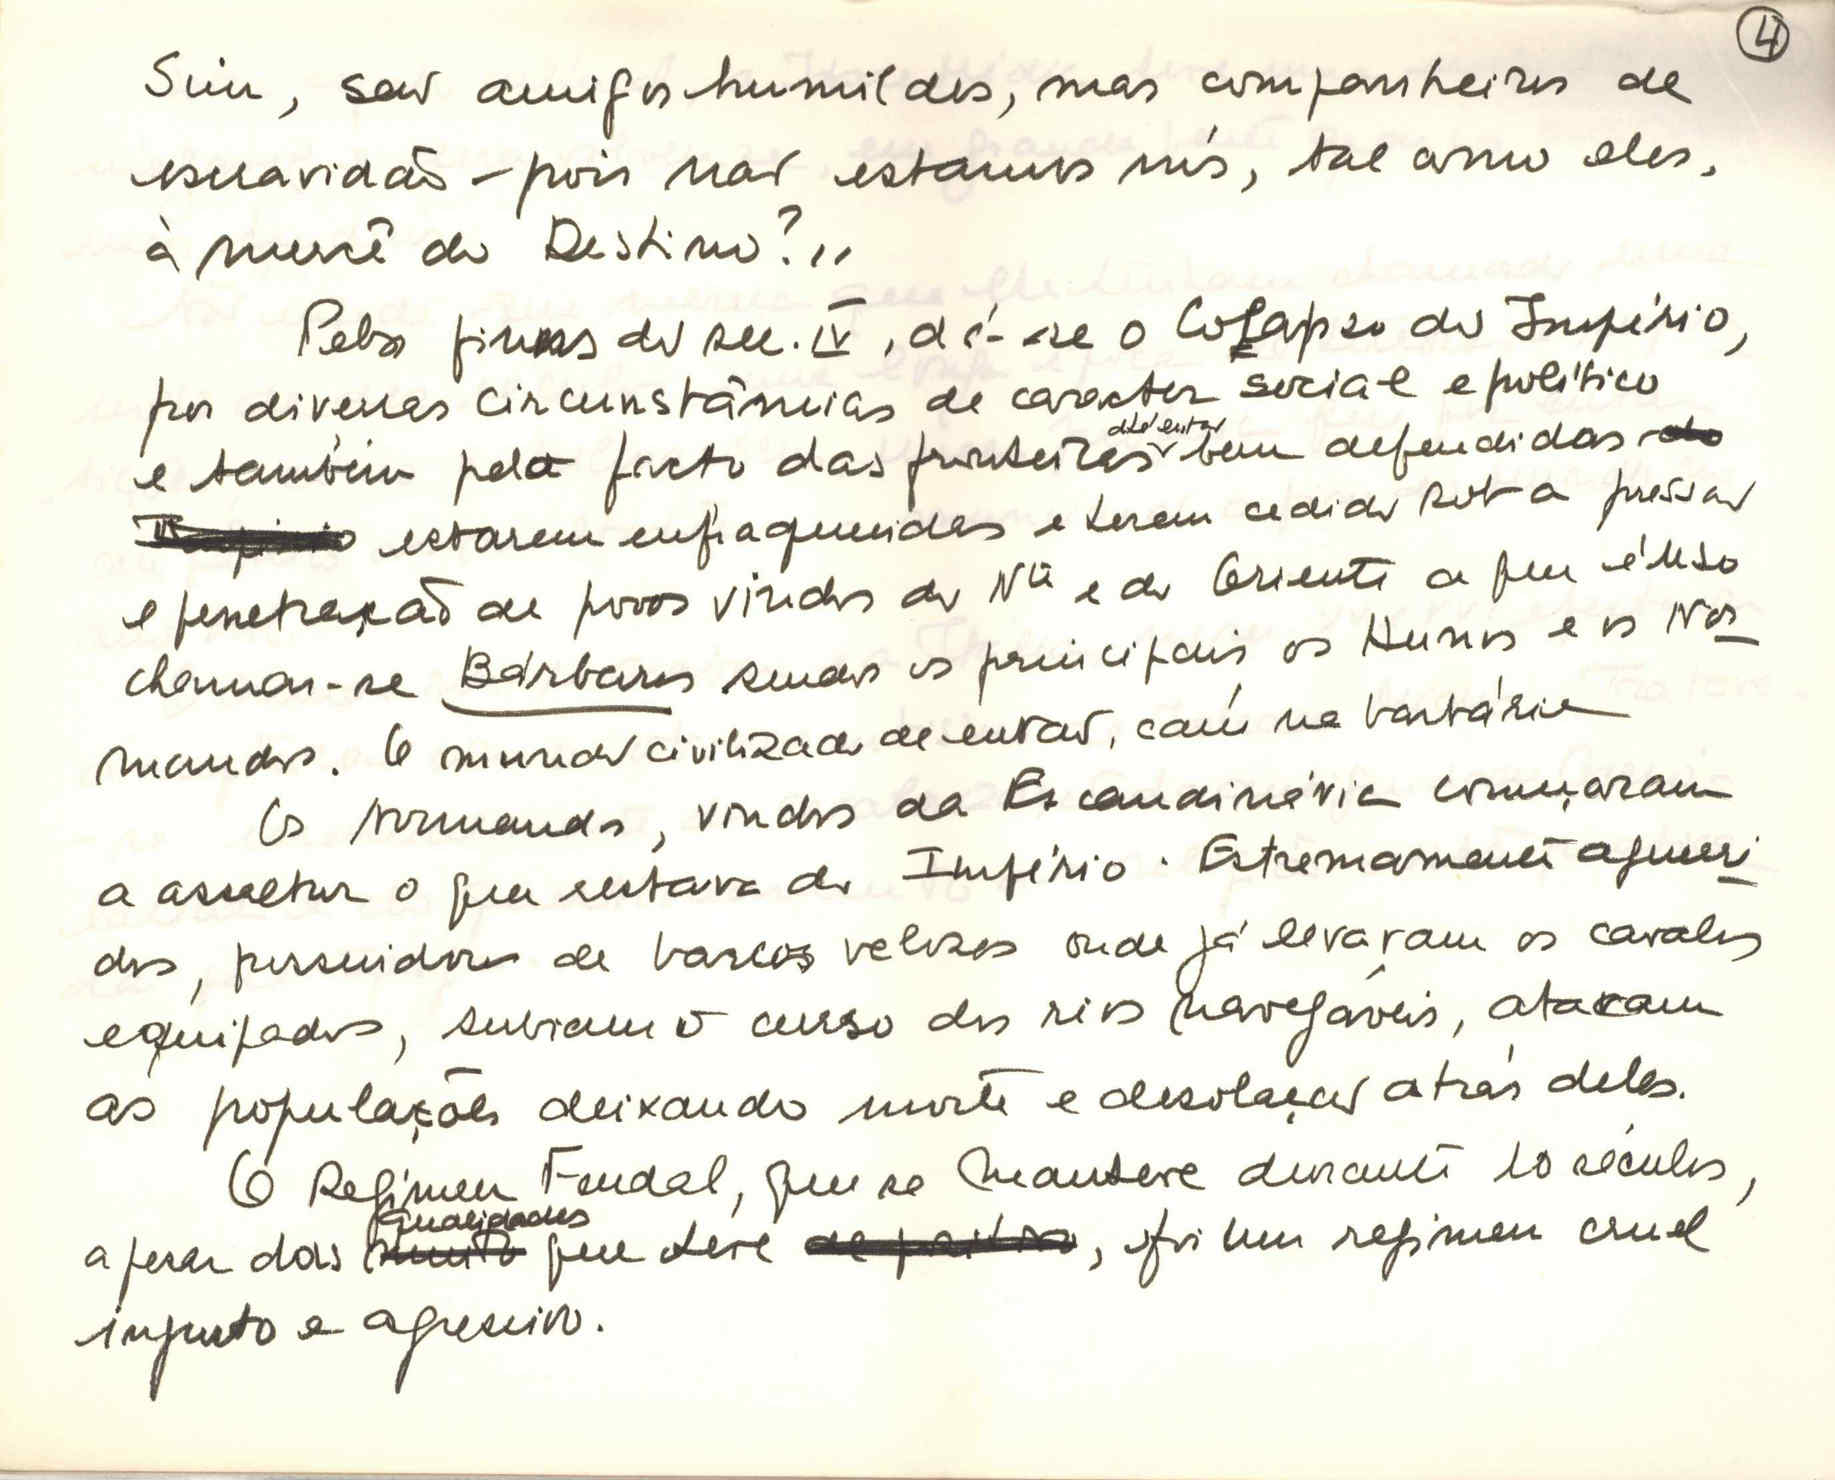 4
Sim, são amigos humildes, mas companheiros de
escravidão – pois não estamos nós, tal como eles,
à mercê do Destino?"
Pelos fins do sec. IV, dá-se o Colapso do Império,
por diversas circunstâncias de caracter social e político
e também pelo facto das fronteiras até então bem defendidas do
Império estarem enfraquecidas e terem cedido sob a pressão
e penetração de povos vindos do Nte e do Oriente a que é uso
chamar-se Bárbaros sendo os principais os Hunos e os Nor
mandos. O mundo civilizado de então, caiu na barbárie
Os Normandos, vindos da Escandinávia começaram
a assaltar o que restava do Império. Estremamente aguerri
dos, possuidores de barcos velozes onde já levavam os cavalos
equipados, subiam o curso dos rios navegáveis, atacam
as populações deixando morte e desolação atrás deles.
O Regimen Feudal, que se manteve durante 10 séculos,
apesar das qualidades que teve, foi um regimen cruel
injusto e agressivo.